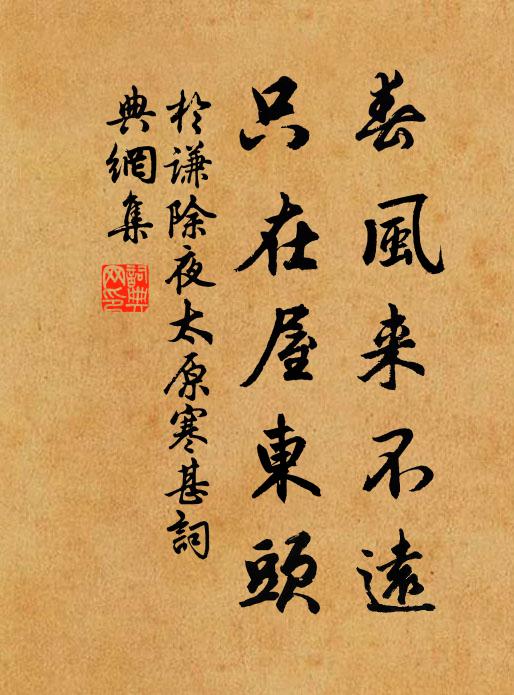 春風来不遠
只在屋東頭
於謙除夜太原寒甚詞
典網集
詞典
网印